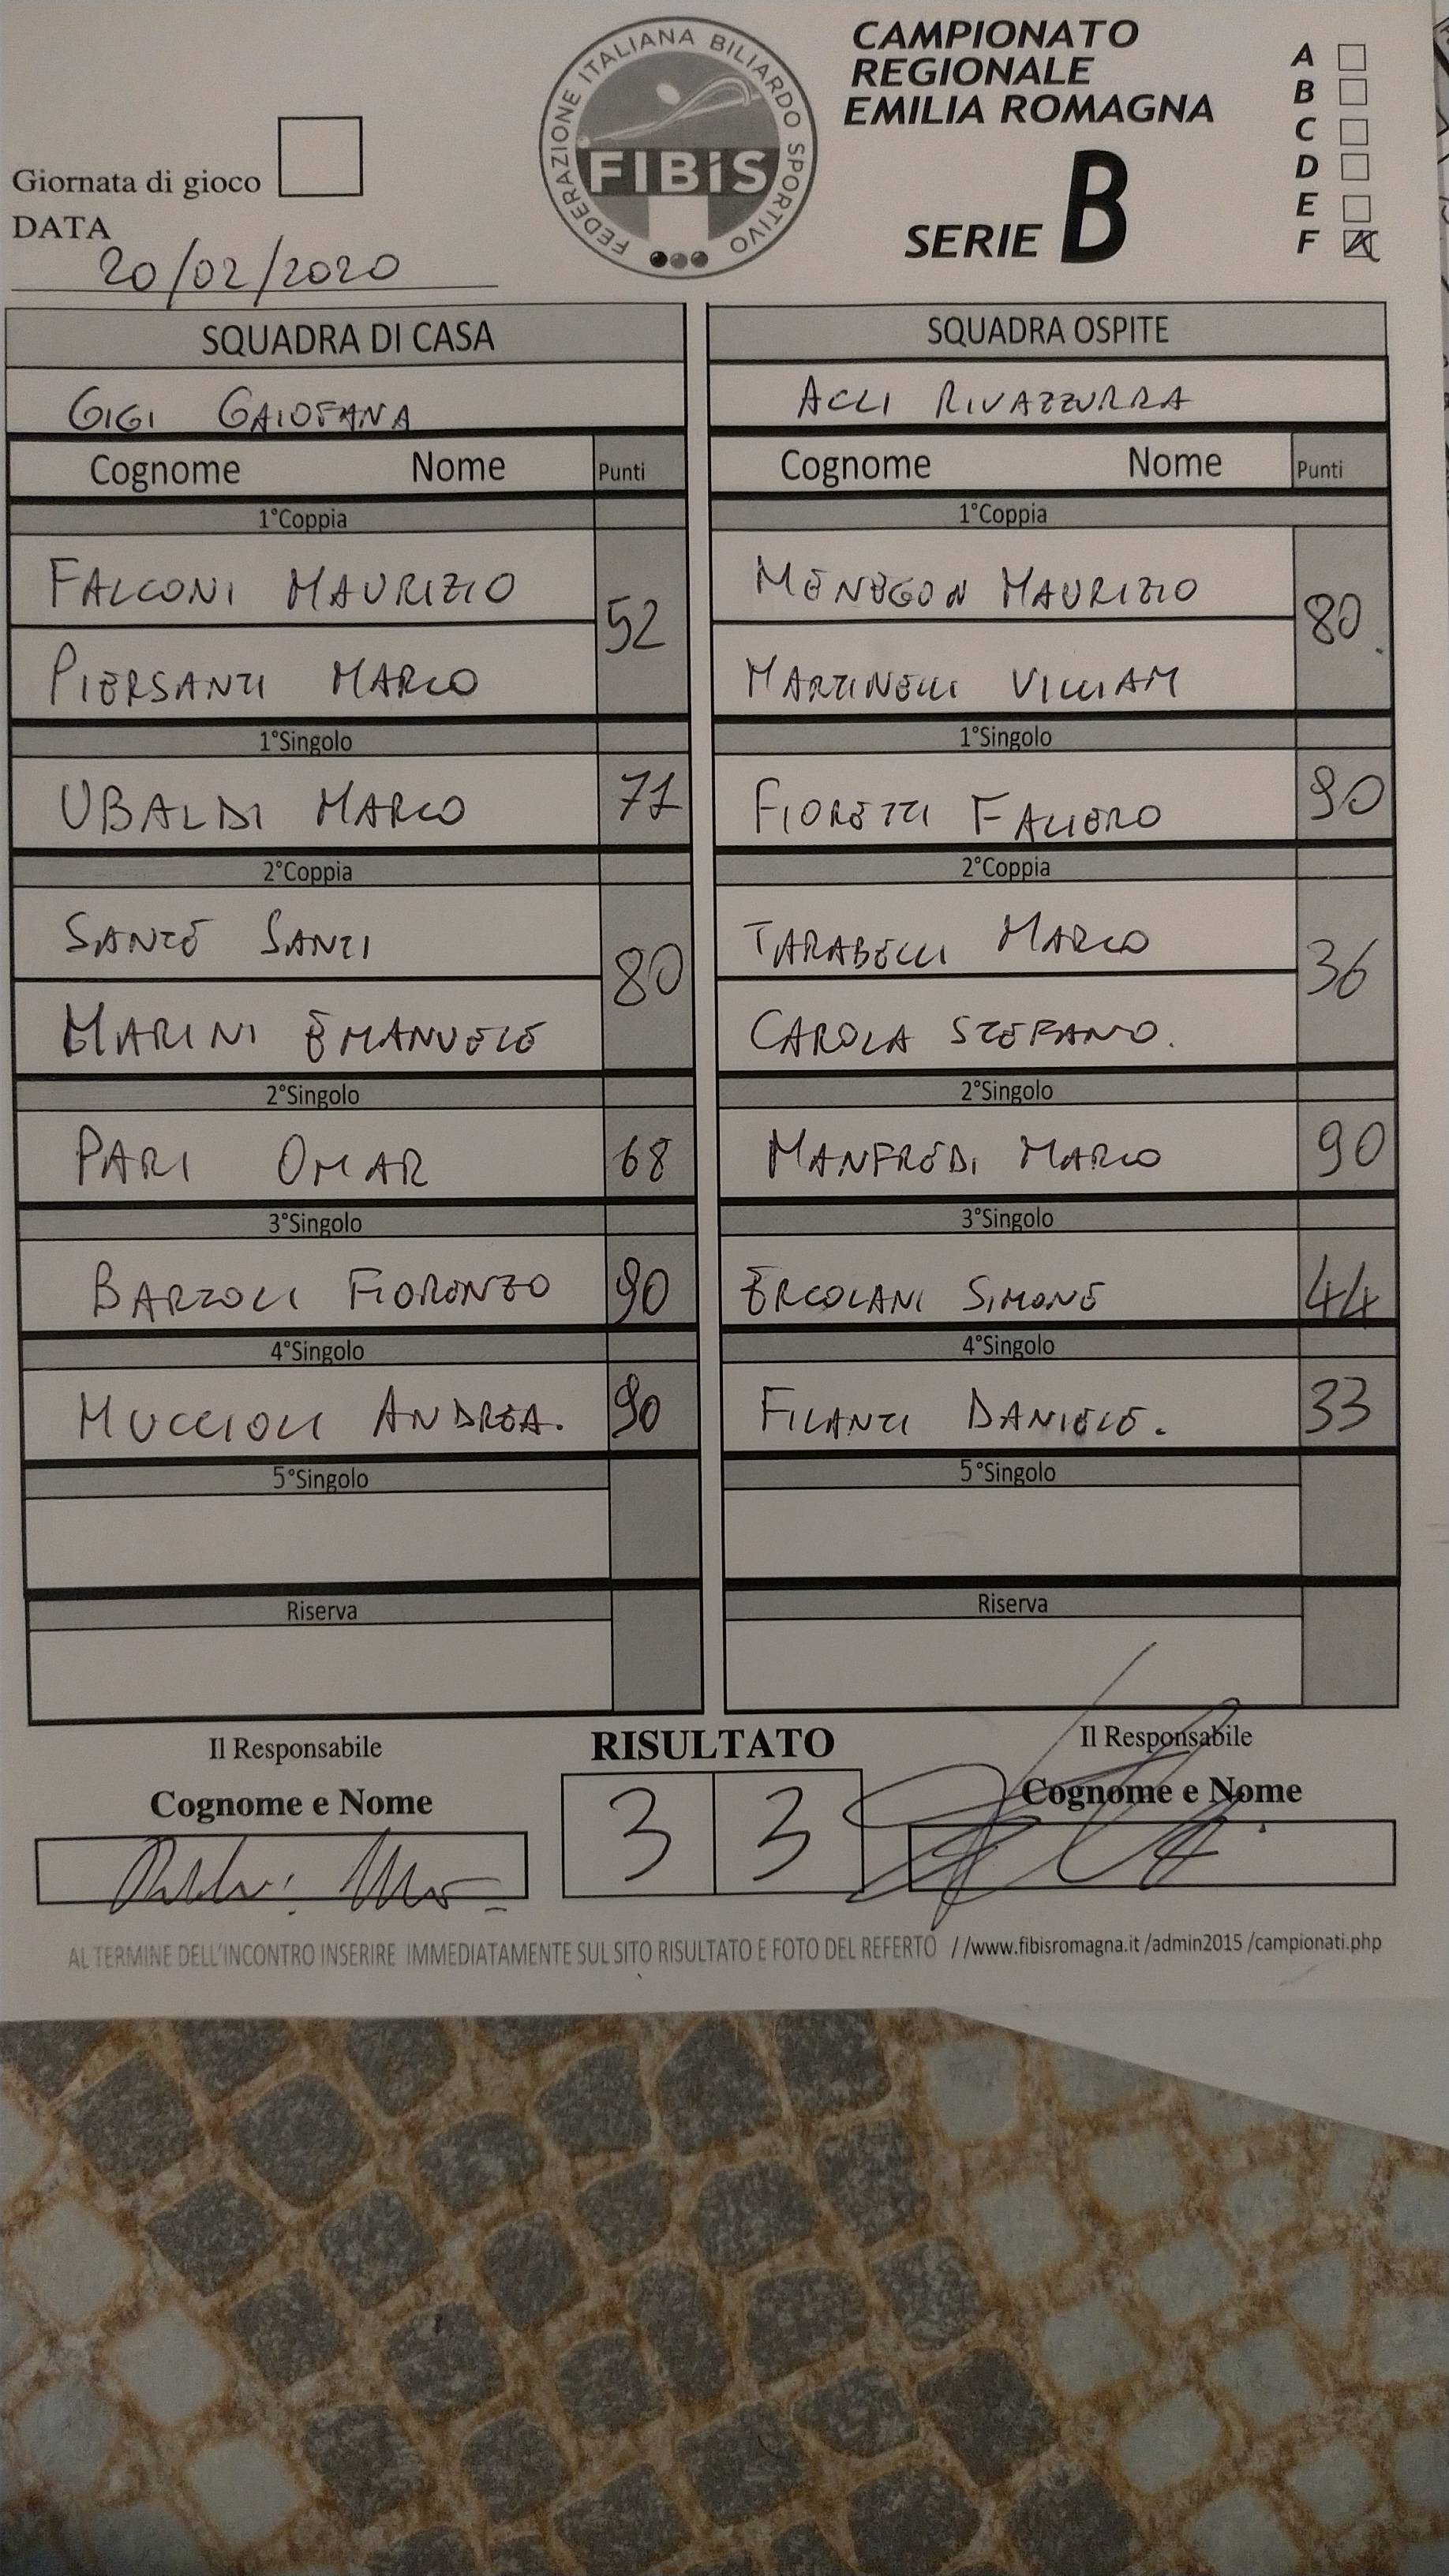 CAMPIONATO
REGIONALE
EMILIA ROMAGNA
SERIE B
A
B
C
D
E
F
FEDERAZIONE ITALIANA BILIARDO SPORTIVO
FIBiS
Giornata di gioco
DATA
20/02/2020
SQUADRA DI CASA SQUADRA OSPITE
GIGI GAIOFANA ACLI RIVAZZURRA
Cognome Nome Punti Cognome Nome Punti
1°Coppia 1°Coppia
FALCONI MAURIZIO MENEGON MAURIZIO
52 80
PIERSANTI MARCO MARTINELLI VILLIAM
1°Singolo 1°Singolo
UBALDI MARCO 71 FIORETTI FALIERO 90
2°Coppia 2°Coppia
SANTE SANTI TARABELLI MARCO
80 36
MARINI EMANUELE CAROLA STEFANO.
2°Singolo 2°Singolo
PARI OMAR 68 MANFREDI MARCO 90
3°Singolo 3°Singolo
BARTOLI FIORENZO 90 ERCOLANI SIMONE 44
4°Singolo 4°Singolo
MUCCIOLI ANDREA. 90 FILANTI DANIELE. 33
5°Singolo 5°Singolo
Riserva Riserva
Il Responsabile RISULTATO Il Responsabile
Cognome e Nome 3 3 Cognome e Nome
AL TERMINE DELL'INCONTRO INSERIRE IMMEDIATAMENTE SUL SITO RISULTATO E FOTO DEL REFERTO //www.fibisromagna.it /admin2015 /campionati.php